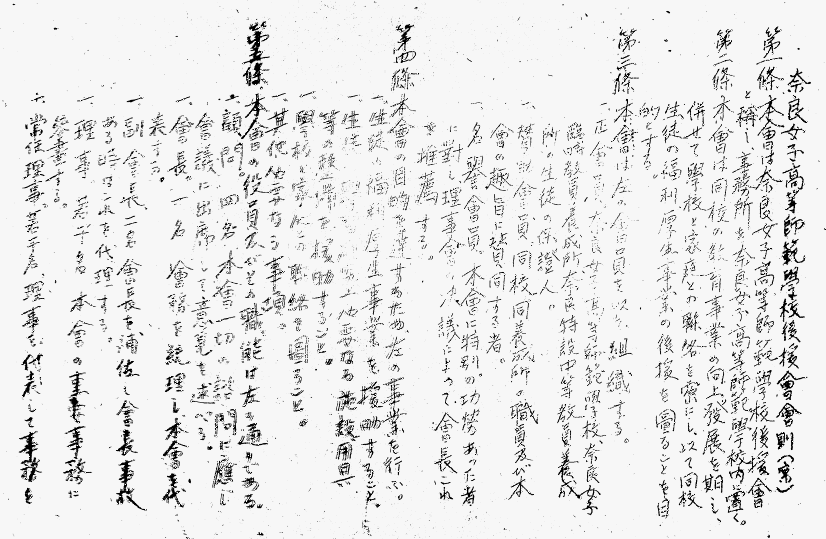 奈良女子高等師範學校後援會會則(案)
第一條 本會は奈良女子高等師範學校後援會
と稱し事務所を奈良女子高等師範學校内に置く。
第二條 本會は同校の教育事業の向上發展を期し、
併せて學校と家庭との聯絡を密にし、以て同校
生徒の福利厚生事業の後援を圖ることを目
的とする。
第三條 本會は左の會員を以て組織する。
一、正會員 奈良女子高等師範學校、奈良女子
臨時教員養成所、奈良特設中等教員養成
所の生徒の保證人。
一、贊助會員 同校、同養成所の職員及び本
會の趣旨に贊同する者。
一、名譽會員 本會に特別の功勞あつた者
に對し理事會の決議によつて會長これ
を推薦する。
第四條 本會の目的を達するため左の事業を行ふ。
一、生徒の福利厚生事業を援助すること。
一、生徒 上必要なる施設用具
等の 援助すること。
一、學校と家庭との聯絡を圖ること。
一、其他必要なる事項。
第五條 本會の役員及びその職能は左の通りである。
一、顧問。四名 本會一切の諮問に應じ
會議に出席して意見を述べる。
一、會長。一名 會務を統理し本會を代
表する。
一、副會長 二名 會長を補佐し會長事故
ある時はこれを代理する。
一、理事 若干名 本會の重要事務に
參畫する。
一、常任理事。若干名、理事を代表して事務を